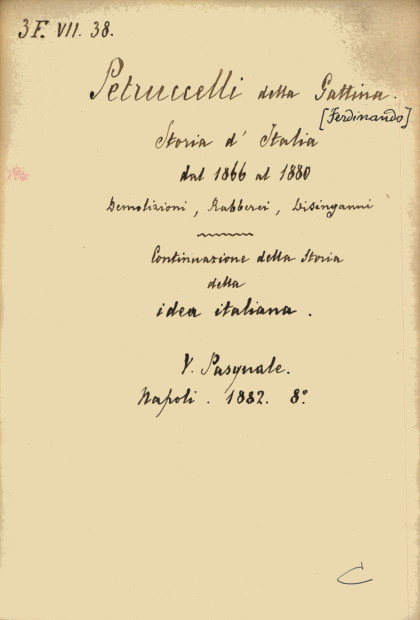 3 F. VII. 38.
Petruccelli della Gattina.
[Ferdinando]
Storia d' Italia
dal 1866 al 1880
Demolizioni, Rabberci, Disinganni
Continuazione della Storia
della
idea italiana.
V. Pasquale.
Napoli. 1882. 8°
C